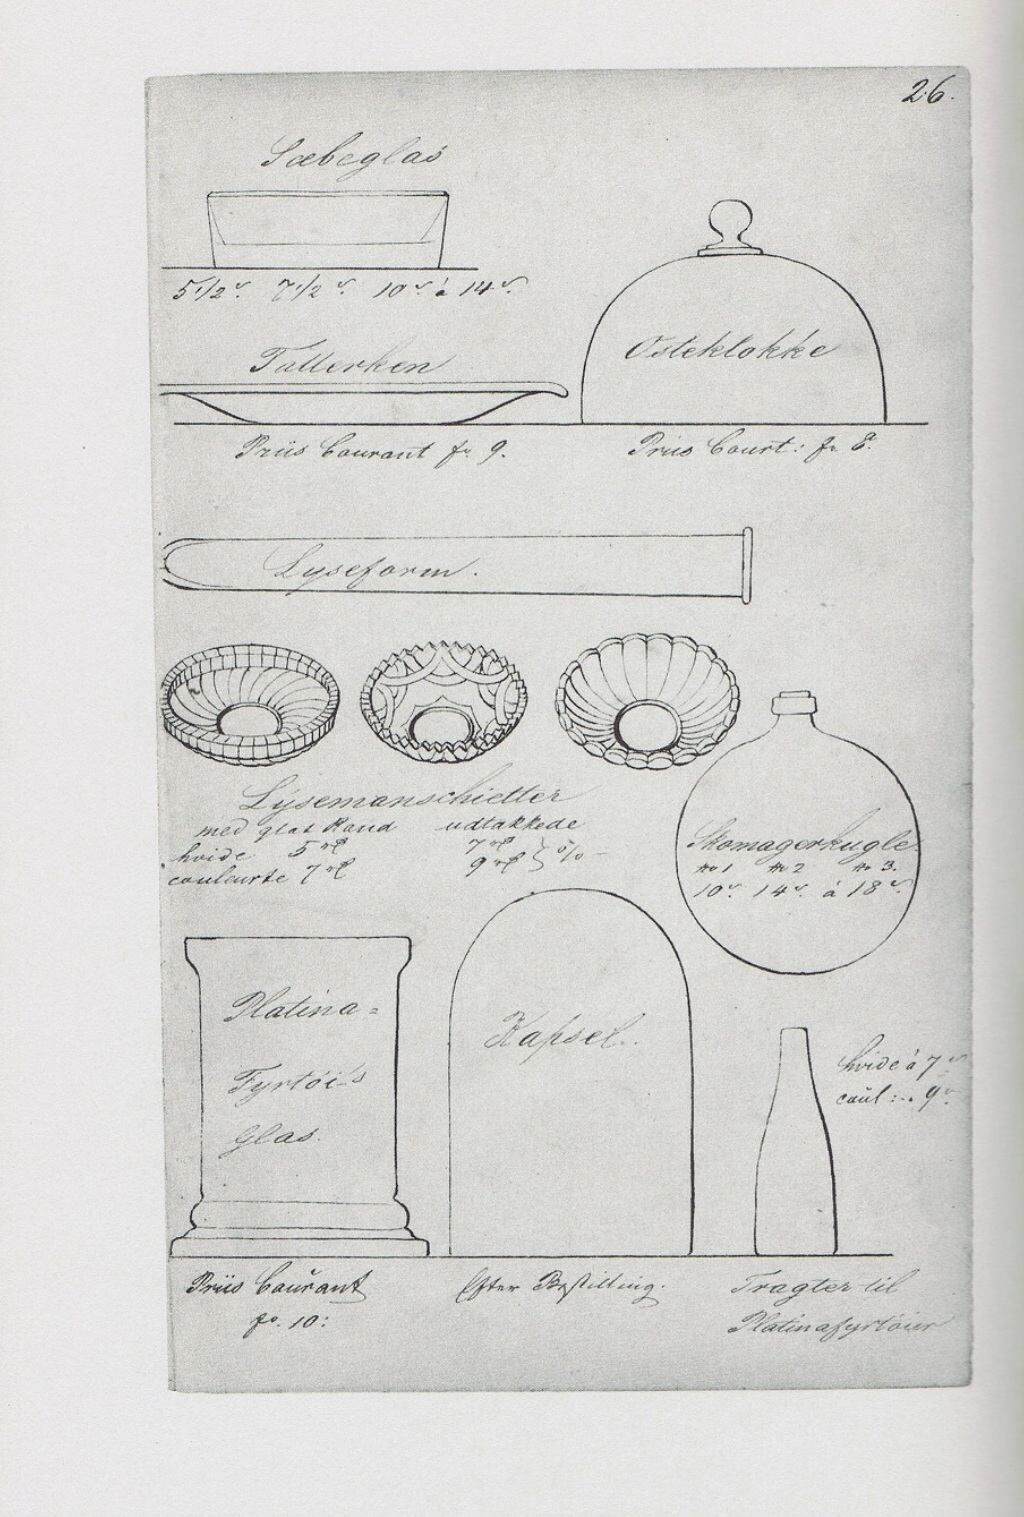 26.
Sæbeglas
5 1/2 v. 7 1/2 v. 10 v. à 14 v.
Tallerken
Osteklokke
Priis Courant fr. 9.
Priis Court: fr. 8.
Lyseform.
Lysemanschetter
med glat Rand udtakkede
hvide 5 rd 7 rd
couleurte 7 rd 9 rd } %
Skomagerkugle
No 1 No 2 No 3.
10 v. 14 v. à 18 v.
Platina-
Fyrtöi's
Glas.
Kapsel.
hvide à 7 v
coul: 9 v.
Priis Courant
fr. 10:
Efter Bestilling.
Tragter til
Platinafyrtöier